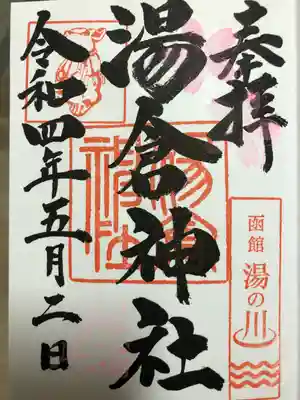 奉拝
函館
湯の川
湯倉神社
湯倉神社
令和四年五月二日